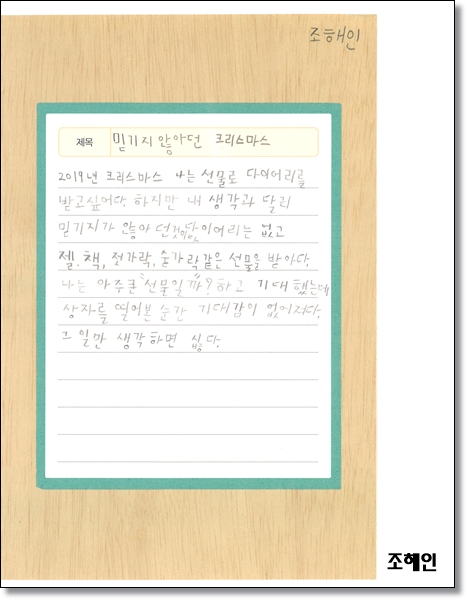 조해인
제목 믿기지 않아던 크리스마스
2019년 크리스마스 나는 선물로 다이어리를
받고싶어다. 하지만 내 생각과 달리
믿기지가 않아던것이다 다이어리는 없고
젤, 책, 젓가락, 숟가락같은 선물을 받아다.
나는 아주큰 "선물일까?" 하고 기대했는데
상자를 열어본 순간 기대감이 없어저다.
그 일만 생각하면 싫다.
조혜인